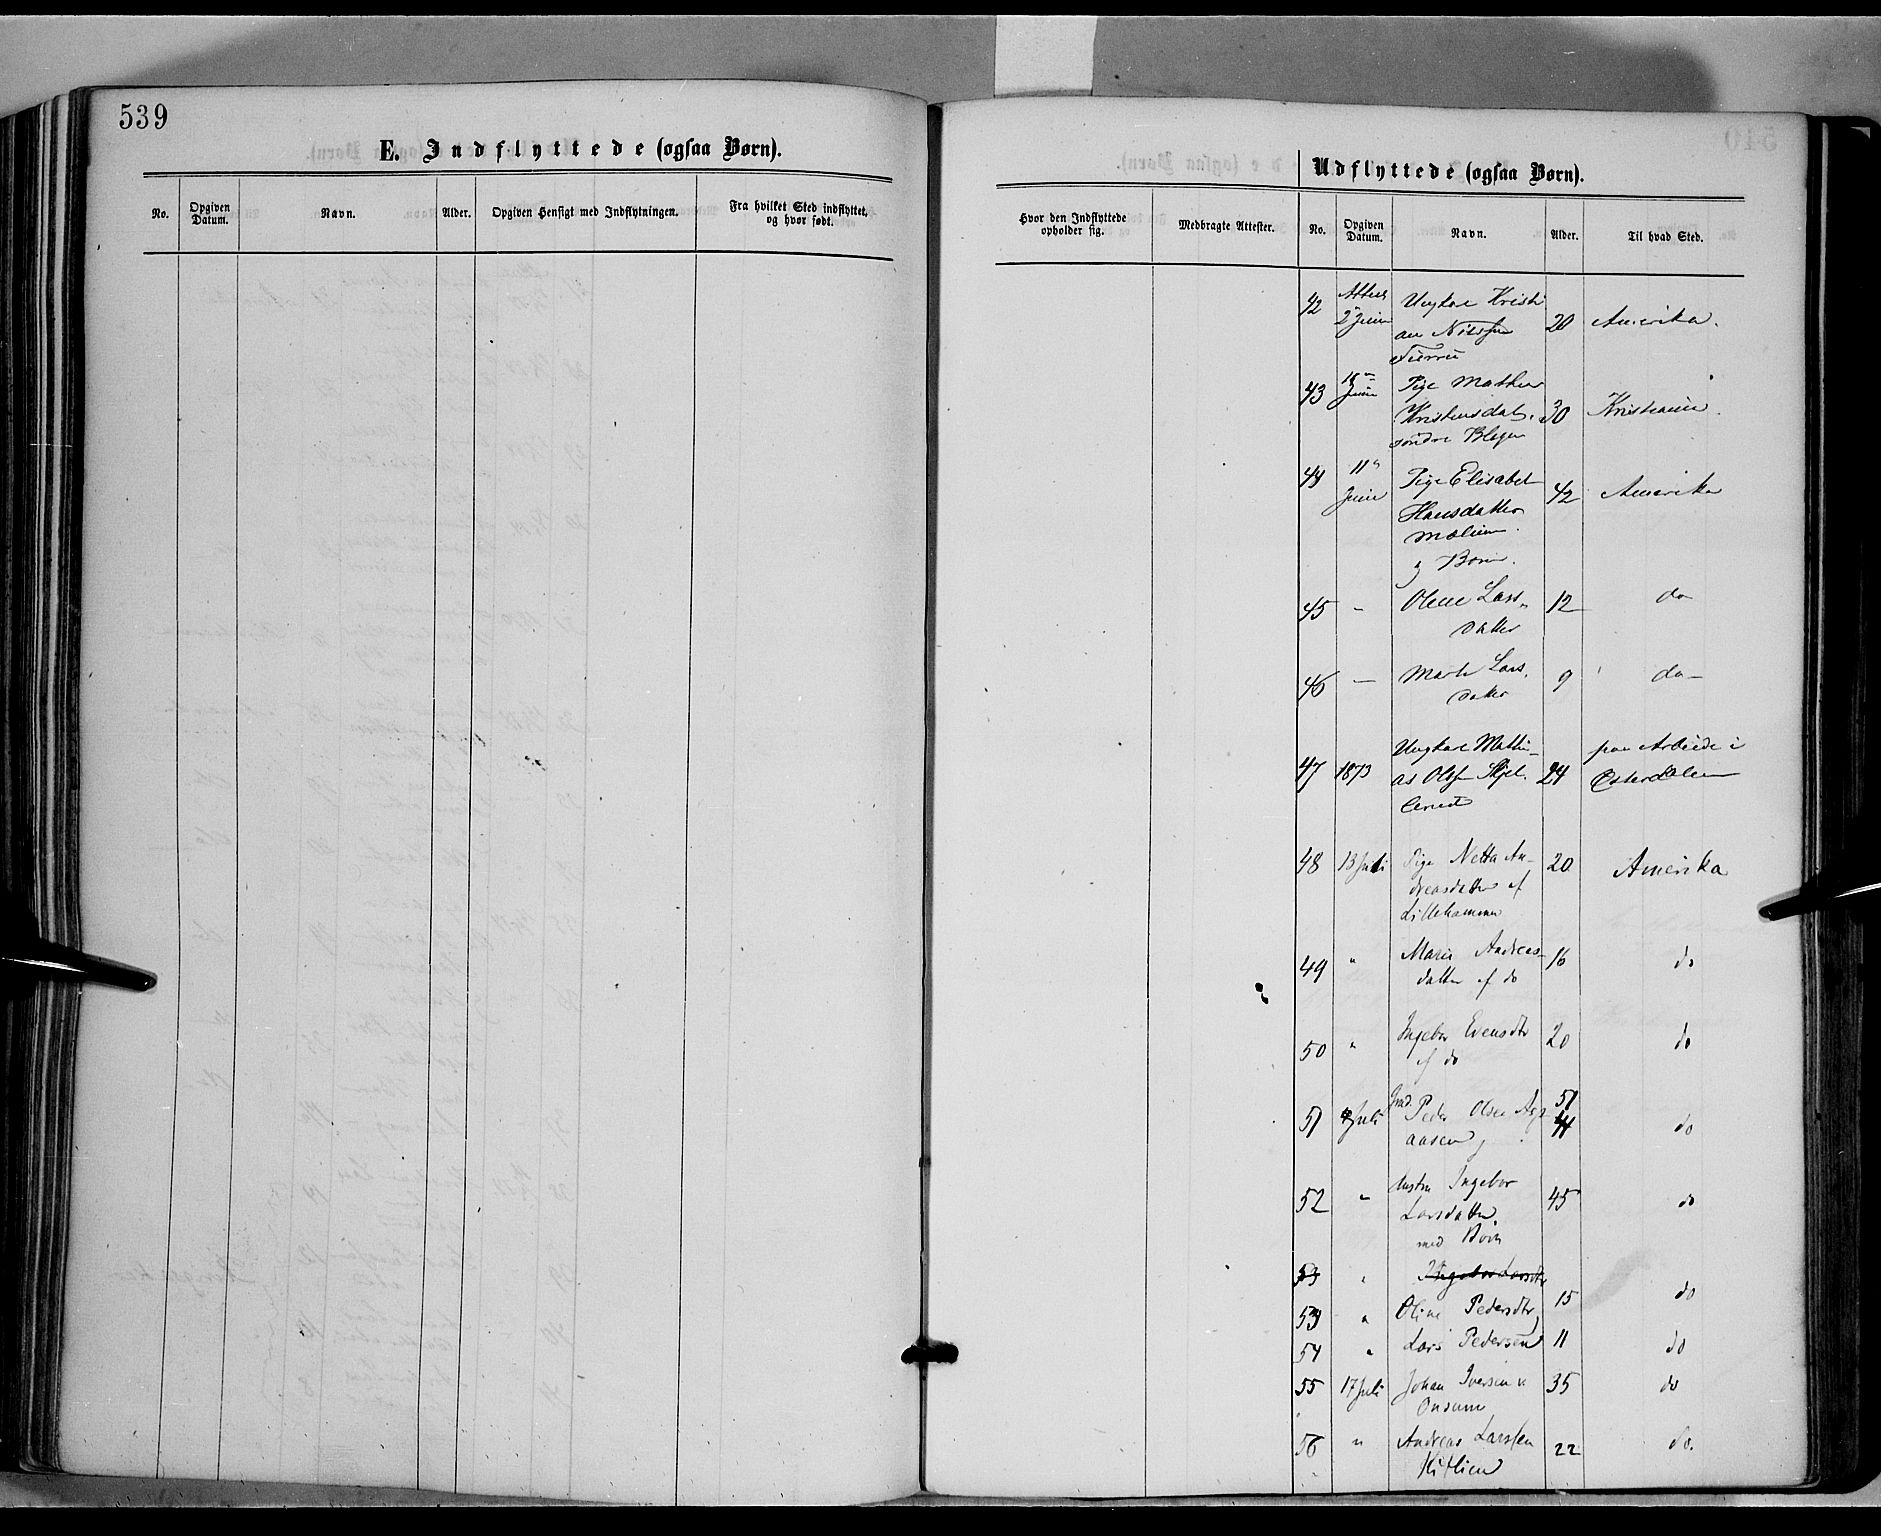 539
E. Indflyttede (ogsaa Børn).
No.
Opgiven Datum.
Navn.
Alder.
Opgiven Hensigt med Indflytningen.
Fra hvilket Sted indflyttet, og hvor født.
Udflyttede (ogsaa Børn).
Hvor den Indflyttede opholder sig.
Medbragte Attester.
No.
Opgiven Datum.
Navn.
Alder.
Til hvad Sted.
42 2 Juni Ungkar Kristi 20 Amerika.
an Nilssen
43 18 Juni Pige Mathea 30 Kristiania.
Kristensdat.
søndre Blegen
44 11 Juni Pige Elisabet 42 Amerika
Hansdatter
og Børn.
45 - Olene Lars- 12 do
datter
46 - Marte Lars- 9 do-
datter
47 1873 Ungkarl Mathi- 24 paa Arbeide i
as Olsen Østerdalen
48 13 Juli Pige Netta An- 20 Amerika
dreasdatter af
Lillehammer
49 " Marie Andreas- 16 do
datter af do
50 " Ingebor Evensdtr 20 do
af do
51 Juli Peder Olsen 51 do
aasen
52 " Hustru Ingebor 45 do
Larsdatter
med Børn
53 " Ingebor Larsdtr
53 " Oline Pedersdtr 15 do
54 " Lars Pedersen 11 do
55 17 Juli Johan Iversen 35 do
Onsum
56 " Andreas Larssen 22 do.
Kitlien